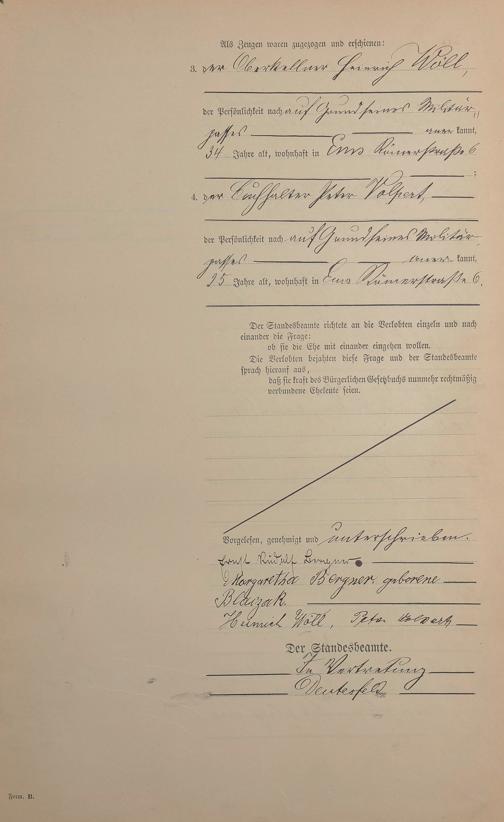 Als Zeugen waren zugezogen und erschienen:
3. der Oberkellner Heinrich Wöll,
der Persönlichkeit nach auf Grund seines Militär-
passes anerkannt,
34 Jahre alt, wohnhaft in Ems Römerstraße 6
;
4. der Buchhalter Peter Volpert,
der Persönlichkeit nach auf Grund seines Militär-
passes anerkannt,
25 Jahre alt, wohnhaft in Ems Römerstraße 6.
Der Standesbeamte richtete an die Verlobten einzeln und nach
einander die Frage:
ob sie die Ehe mit einander eingehen wollen.
Die Verlobten bejahten diese Frage und der Standesbeamte
sprach hierauf aus,
daß sie kraft des Bürgerlichen Gesetzbuchs nunmehr rechtmäßig
verbundene Eheleute seien.
Vorgelesen, genehmigt und unterschrieben.
Ernst Rudolf Bergner
Margaretha Bergner geborene
Blaczak
Heinrich Wöll, Peter Volpert
Der Standesbeamte.
In Vertretung
Form. B.